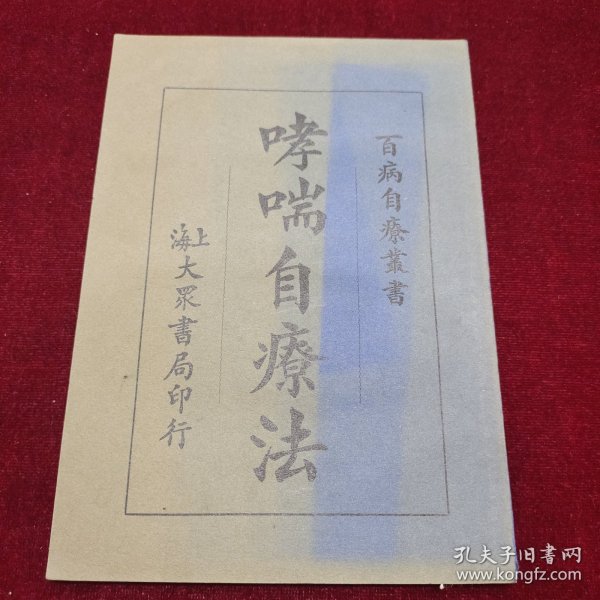 百病自療叢書
哮喘自療法
上海大眾書局印行
孔夫子旧书网
www.kongfz.com